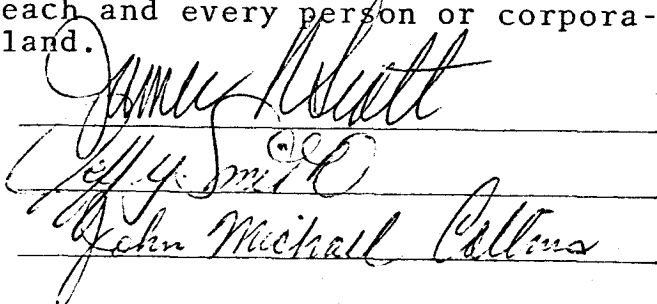 each and every person or corpora-
land.
James N Scott
Jeff Y. Smith
John Michael Collins